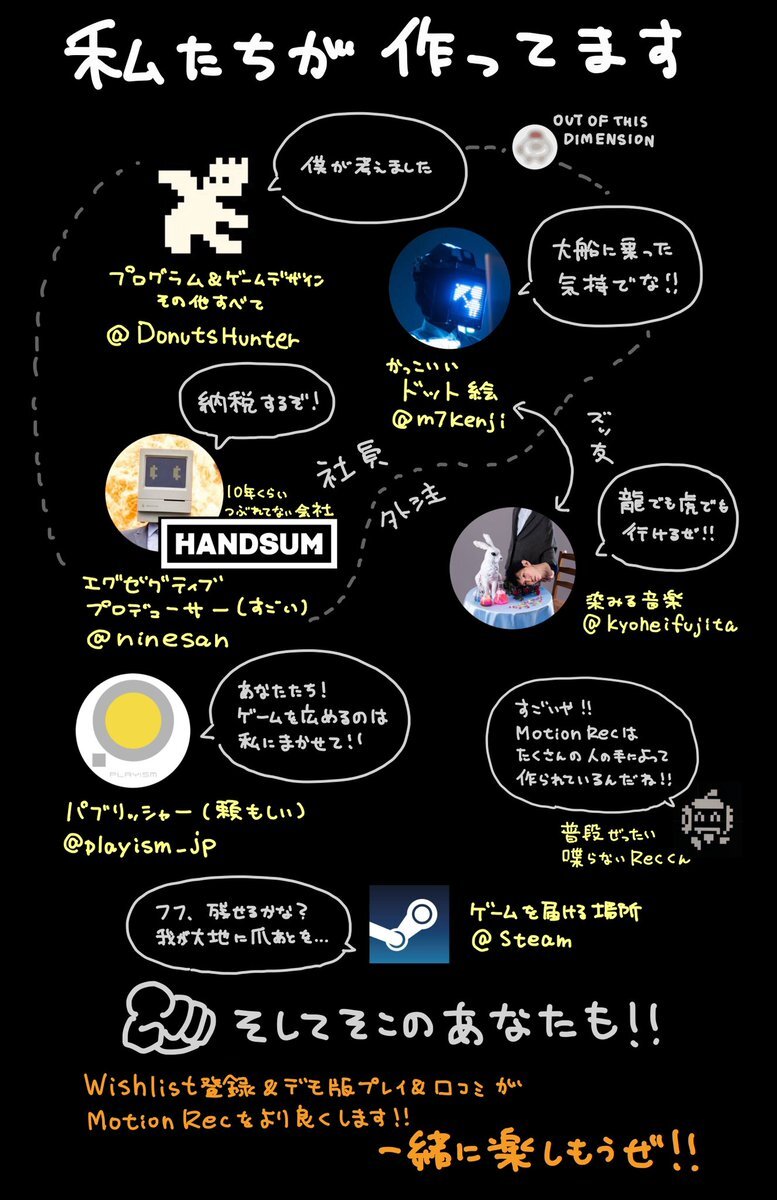 私たちが作ってます
OUT OF THIS
DIMENSION
僕が考えました
プログラム&ゲームデザイン
その他すべて
@DonutsHunter
大船に乗った
気持でな!!
かっこいい
ドット絵
@m7kenji
納税するぞ!
社員
外注
ズッ友
10年くらい
つぶれてない会社
HANDSUM
エグゼグティブ
プロデューサー(すごい)
@ninesan
龍でも虎でも
行けるぜ!!
染みる音楽
@kyoheifujita
あなたたち!
ゲームを広めるのは
私にまかせて!!
PLAYISM
パブリッシャー(頼もしい)
@playism_jp
すごいや!!
Motion Recは
たくさんの人の手によって
作られているんだね!!
普段ぜったい
喋らないRecくん
フフ、残せるかな?
我が大地に爪あとを…
ゲームを届ける場所
@Steam
そしてそこのあなたも!!
Wishlist登録&デモ版プレイ&口コミが
Motion Recをより良くします!!
一緒に楽しもうぜ!!